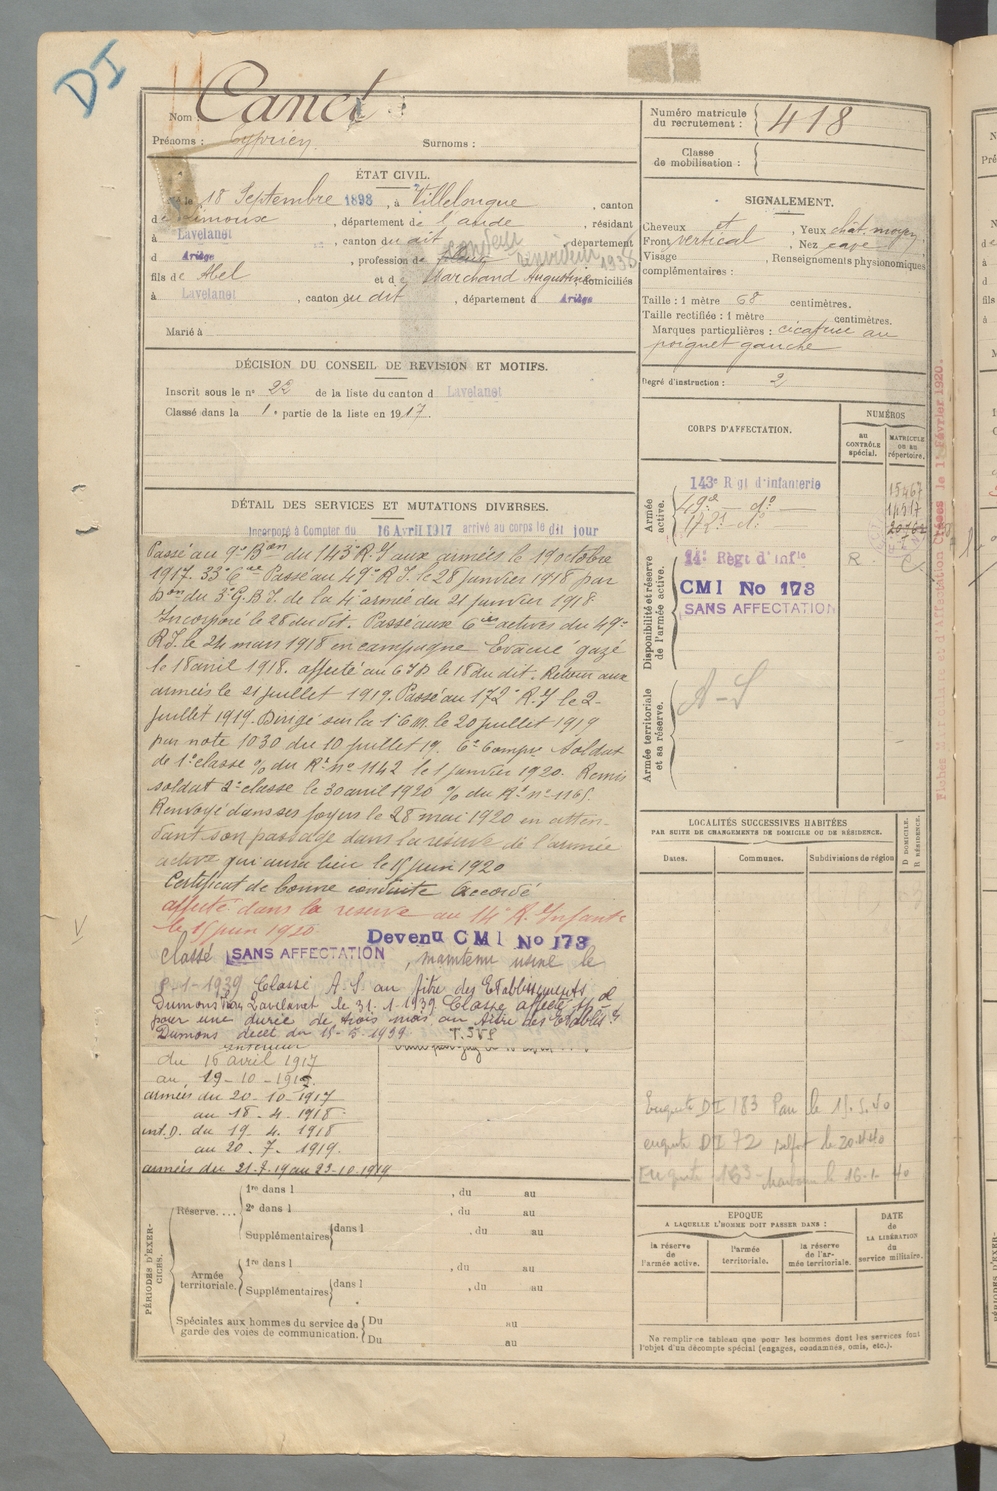 DI
Nom : Canet
Prénoms : Cyprien. Surnoms :
Numéro matricule du recrutement : 418
Classe de mobilisation :
ÉTAT CIVIL.
le 18 Septembre 1898, à Villelongue, canton
de Limoux, département de l'aude, résidant
à Lavelanet, canton du dit, département
d Ariège, profession de
fils de Abel et de Marchand Augustine domiciliés
à Lavelanet, canton du dit, département d Ariège
Marié à
SIGNALEMENT.
Cheveux Yeux chât. moyen
Front vertical, Nez cave
Visage , Renseignements physionomiques
complémentaires :
Taille : 1 mètre 68 centimètres.
Taille rectifiée : 1 mètre centimètres.
Marques particulières : cicatrice au
poignet gauche
Degré d'instruction : 2
DÉCISION DU CONSEIL DE REVISION ET MOTIFS.
Inscrit sous le n° 22 de la liste du canton d Lavelanet
Classé dans la 1e partie de la liste en 1917.
DÉTAIL DES SERVICES ET MUTATIONS DIVERSES.
Incorporé à Compter du 16 Avril 1917 arrivé au corps le dit jour
Passé au 9e Bon du 143e R.I aux armées le 19 octobre
1917. 33e Cie Passé au 49e R.I. le 28 janvier 1918 par
Don du 3e G.B.I. de la 4e armée du 21 janvier 1918.
Incorporé le 28 du dit. Passé aux Cies actives du 49e
R.I. le 24 mars 1918 en campagne Evacué gazé
le 18 avril 1918. affecté au le 18 du dit. Retour aux
armées le 21 juillet 1919. Passé au 172e R.I le 2
juillet 1919. Dirigé sur la le 20 juillet 1919
par note 1030 du 10 juillet 19. 6e Compie Soldat
de 1e classe % du Rt n° 1142 le 1 janvier 1920. Remis
soldat 2e classe le 30 avril 1920 % du Rt n° 1165.
Renvoyé dans ses foyers le 28 mai 1920 en atten-
dant son passage dans la réserve de l'armée
active qui aura lieu le 15 juin 1920
Certificat de bonne conduite Accordé
affecté dans la réserve au 14e R. Infante
le 15 juin 1920. Devenu CMI No 173
classé SANS AFFECTATION, maintenu usine le
-1-1939 Classé A.S. au titre des Etablissements
Dumons Lavelanet le 31-1-1939 Classé affecté
pour une durée de trois mois au titre des Etablis
Dumons 1939. T.SVP
intérieur
du 16 avril 1917
au 19-10-1917.
armées du 20-10-1917
au 18.4.1918.
int. D. du 19.4.1918
au 20.7.1919.
armées du 21.7.19 au 23.10.1919
CORPS D'AFFECTATION.
NUMÉROS
au CONTRÔLE spécial.
MATRICULE ou au répertoire.
Armée active.
143e Rgt d'Infanterie 15467
49e do 14517
172e do
Disponibilité et réserve de l'armée active.
14e Regt d'Infie R. C.
CMI No 173
SANS AFFECTATION
Armée territoriale et sa réserve.
A-S
LOCALITÉS SUCCESSIVES HABITÉES
PAR SUITE DE CHANGEMENTS DE DOMICILE OU DE RÉSIDENCE.
D DOMICILE. R RÉSIDENCE.
Dates. Communes. Subdivisions de région
Enquete DI 183 Pau le 15.5.40
enquete DI 72 le 20.4.40
Enquete 163 le 16-1-40
PÉRIODES D'EXERCICES.
Réserve.... 1re dans l , du au
2e dans l , du au
Supplémentaires dans l , du au
Armée territoriale. 1re dans l , du au
Supplémentaires dans l , du au
Spéciales aux hommes du service de garde des voies de communication. Du au
Du au
EPOQUE
A LAQUELLE L'HOMME DOIT PASSER DANS :
la réserve de l'armée active.
l'armée territoriale.
la réserve de l'armée territoriale.
DATE de LA LIBÉRATION du service militaire.
Ne remplir ce tableau que pour les hommes dont les services font
l'objet d'un décompte spécial (engagés, condamnés, omis, etc.).